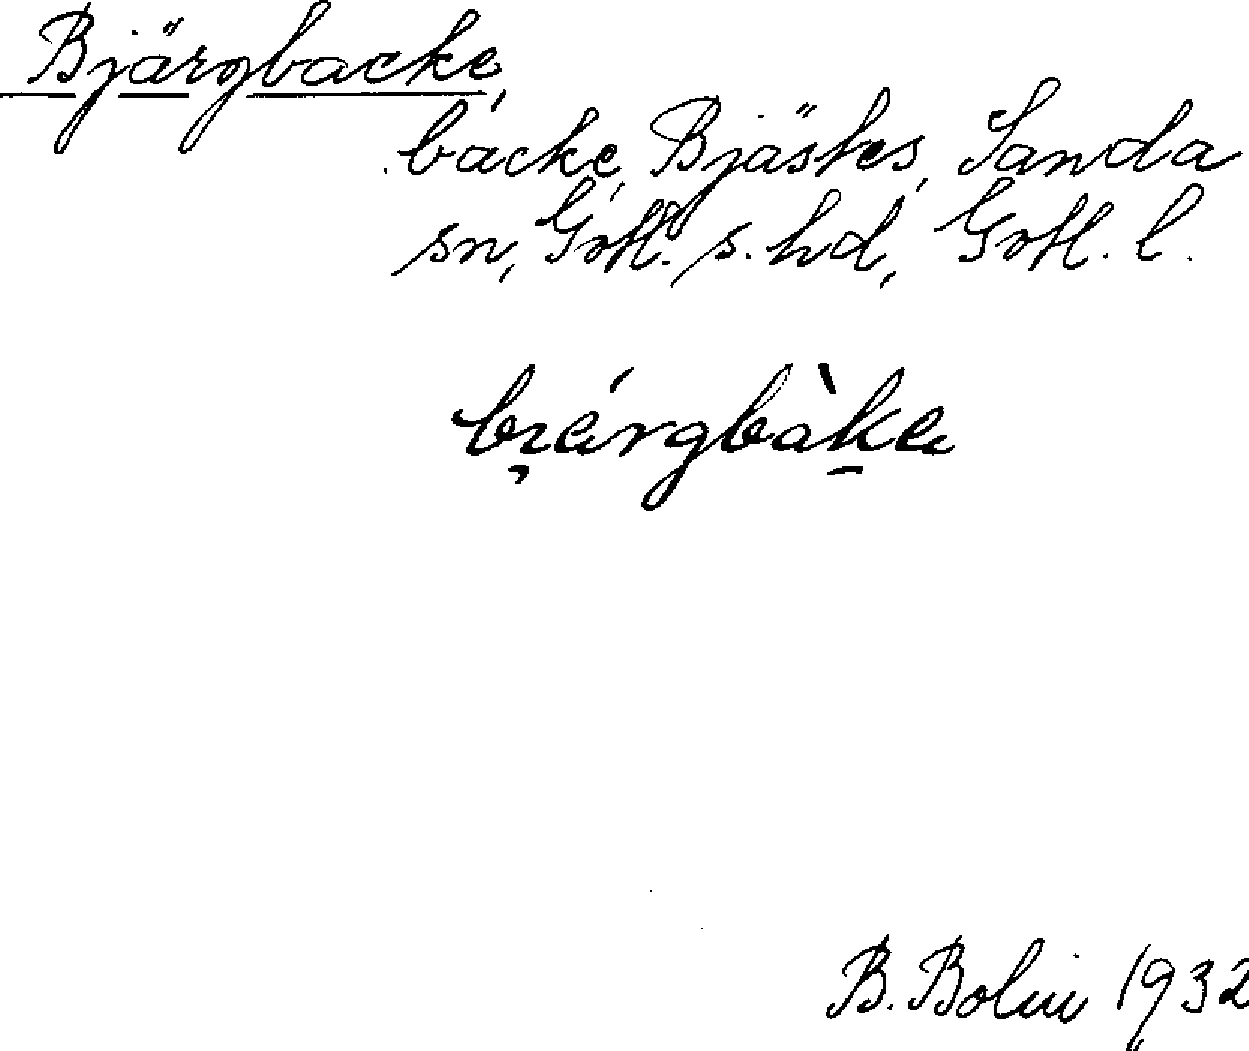 Bjärgbacke,
backe, Bjästes, Sanda
sn, Gotl. s. hd, Gotl. l.
B. Bolin 1932